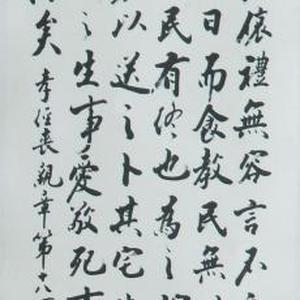 偯禮無容言不
日而食教民無
民有終也為之
以送之卜其宅
之生事愛敬死事
矣 孝經喪親章第十八